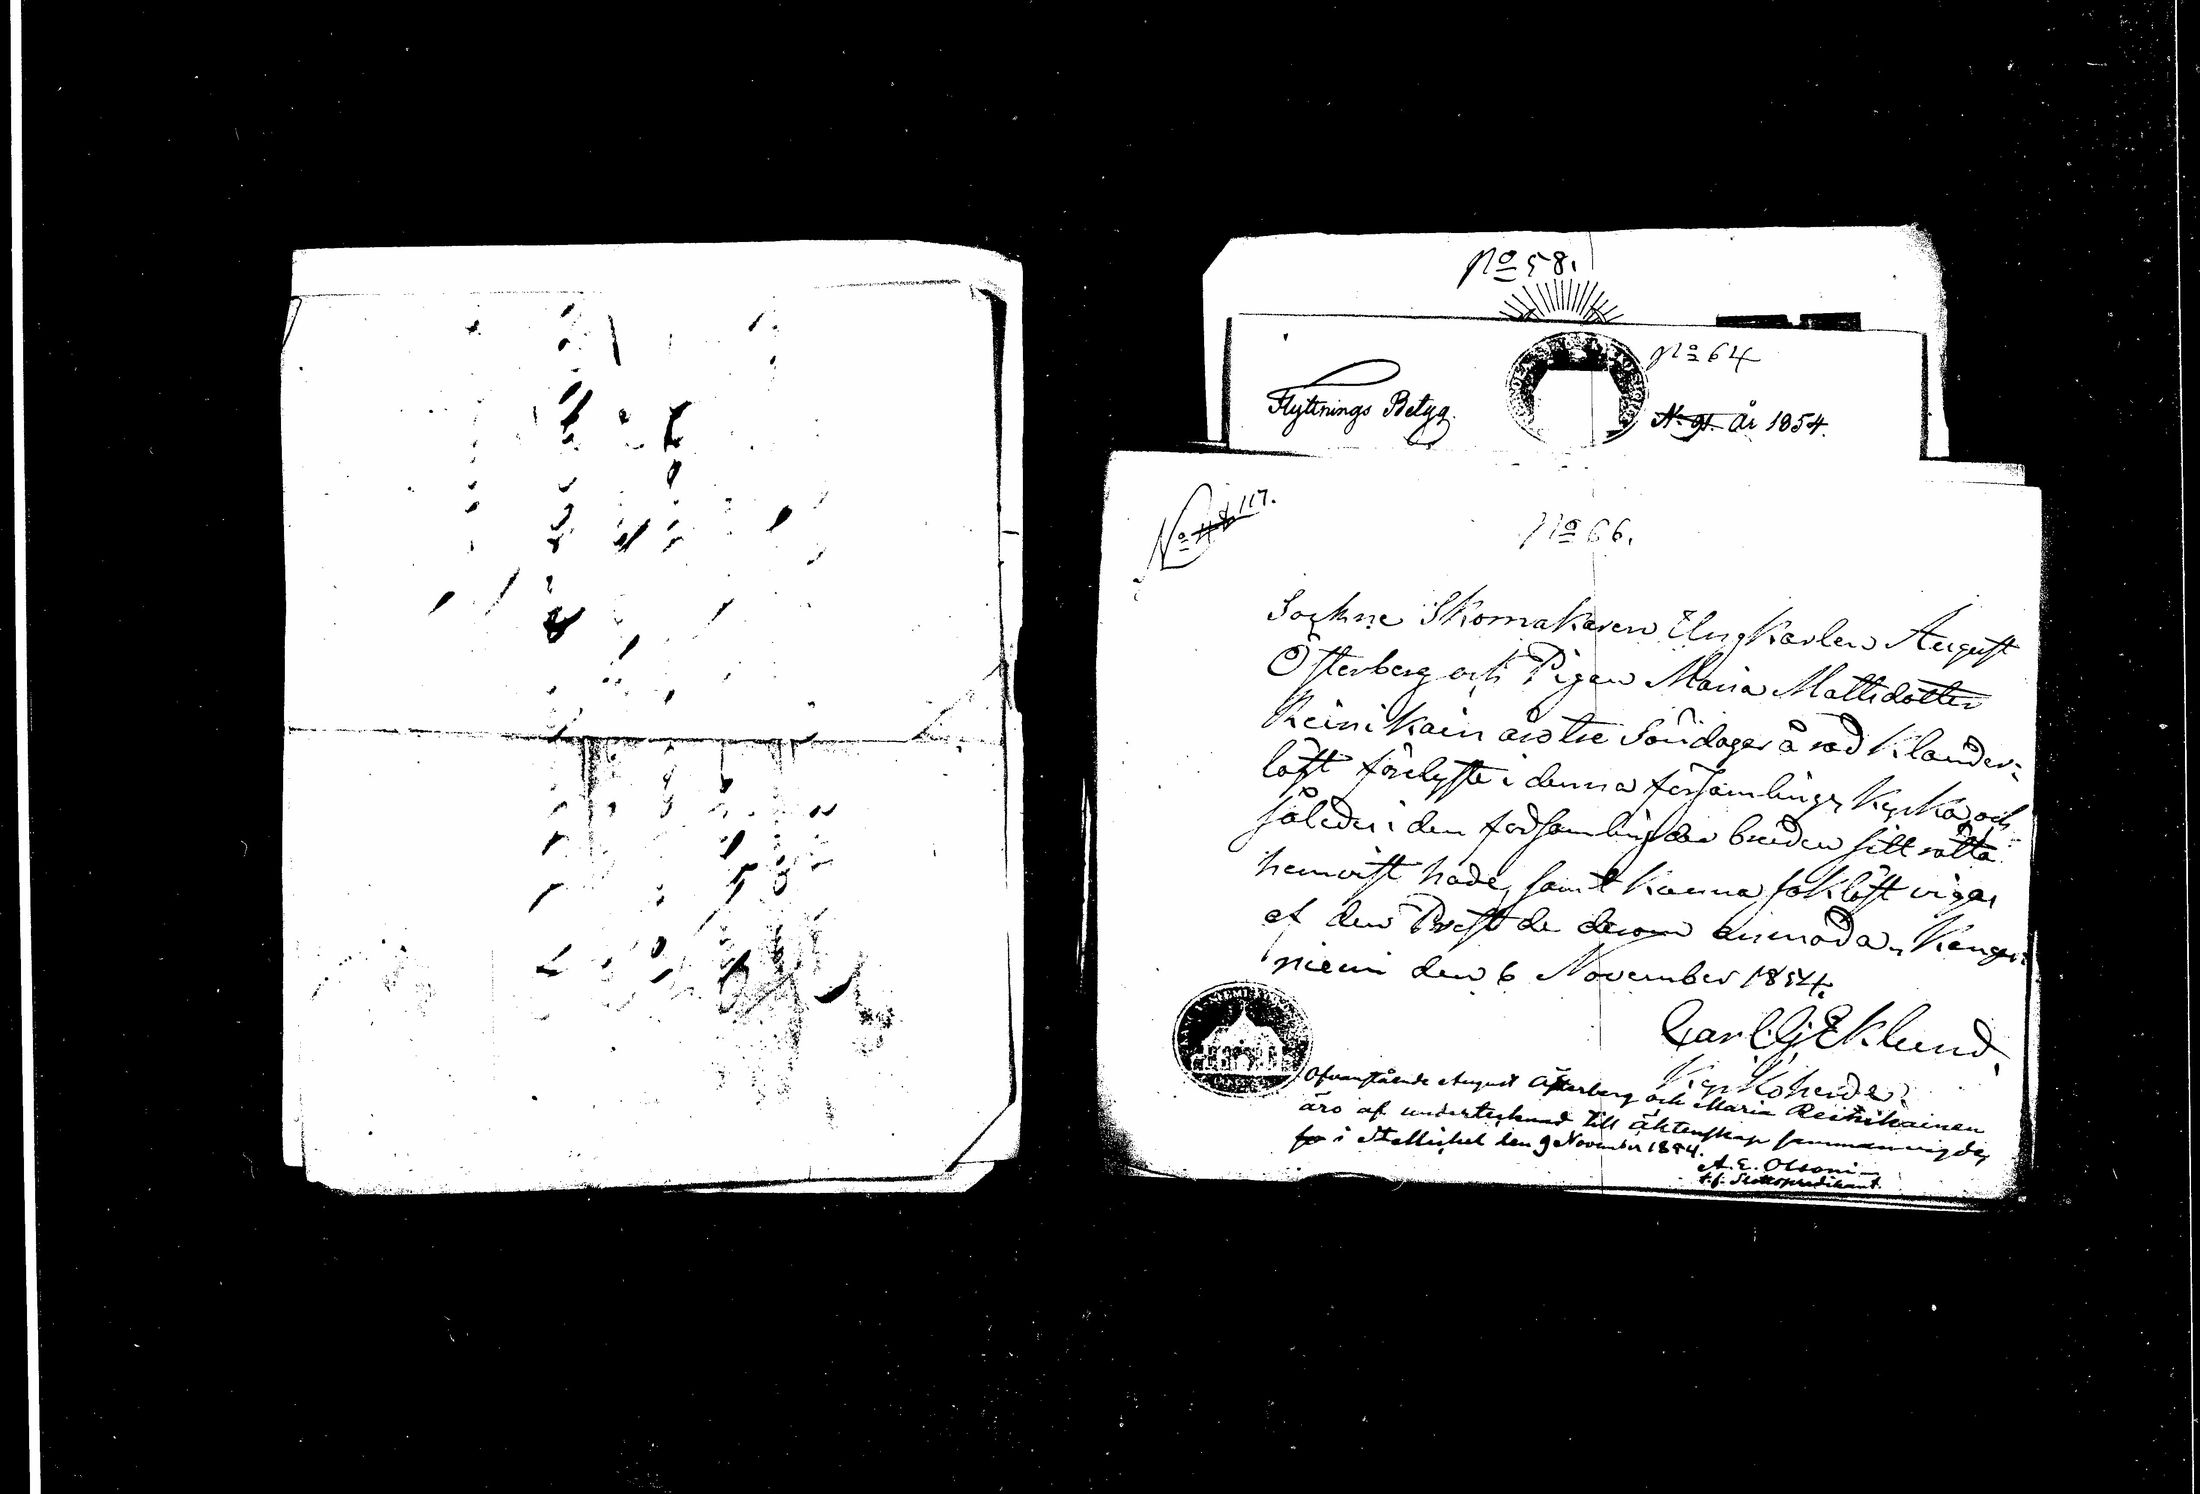 No 58.
No 64
Flyttnings Betyg.
N. 91. År 1854.
No 117.
No 66.
Sockne Skomakaren Ungkarlen August
Österberg och Pigan Maria Mattsdotter
Reinikain äro tre Söndagar å rad Klander-
löst förelyste i denna församlings Kyrka, och
således i den församling der bruden sitt rätta
hemvist hade, samt kunna saklöst vigas
af den Prest de derom anmoda. Kangas-
niemi den 6 November 1854.
Carl Gj Eklund,
Kyrkoherde.
Ofvanstående August Österberg och Maria Reinikainen
äro af undertecknad till äktenskap sammanvigde,
i St Michel den 9 November 1854.
A. E. Olsoni
t.f. Slottspredikant.